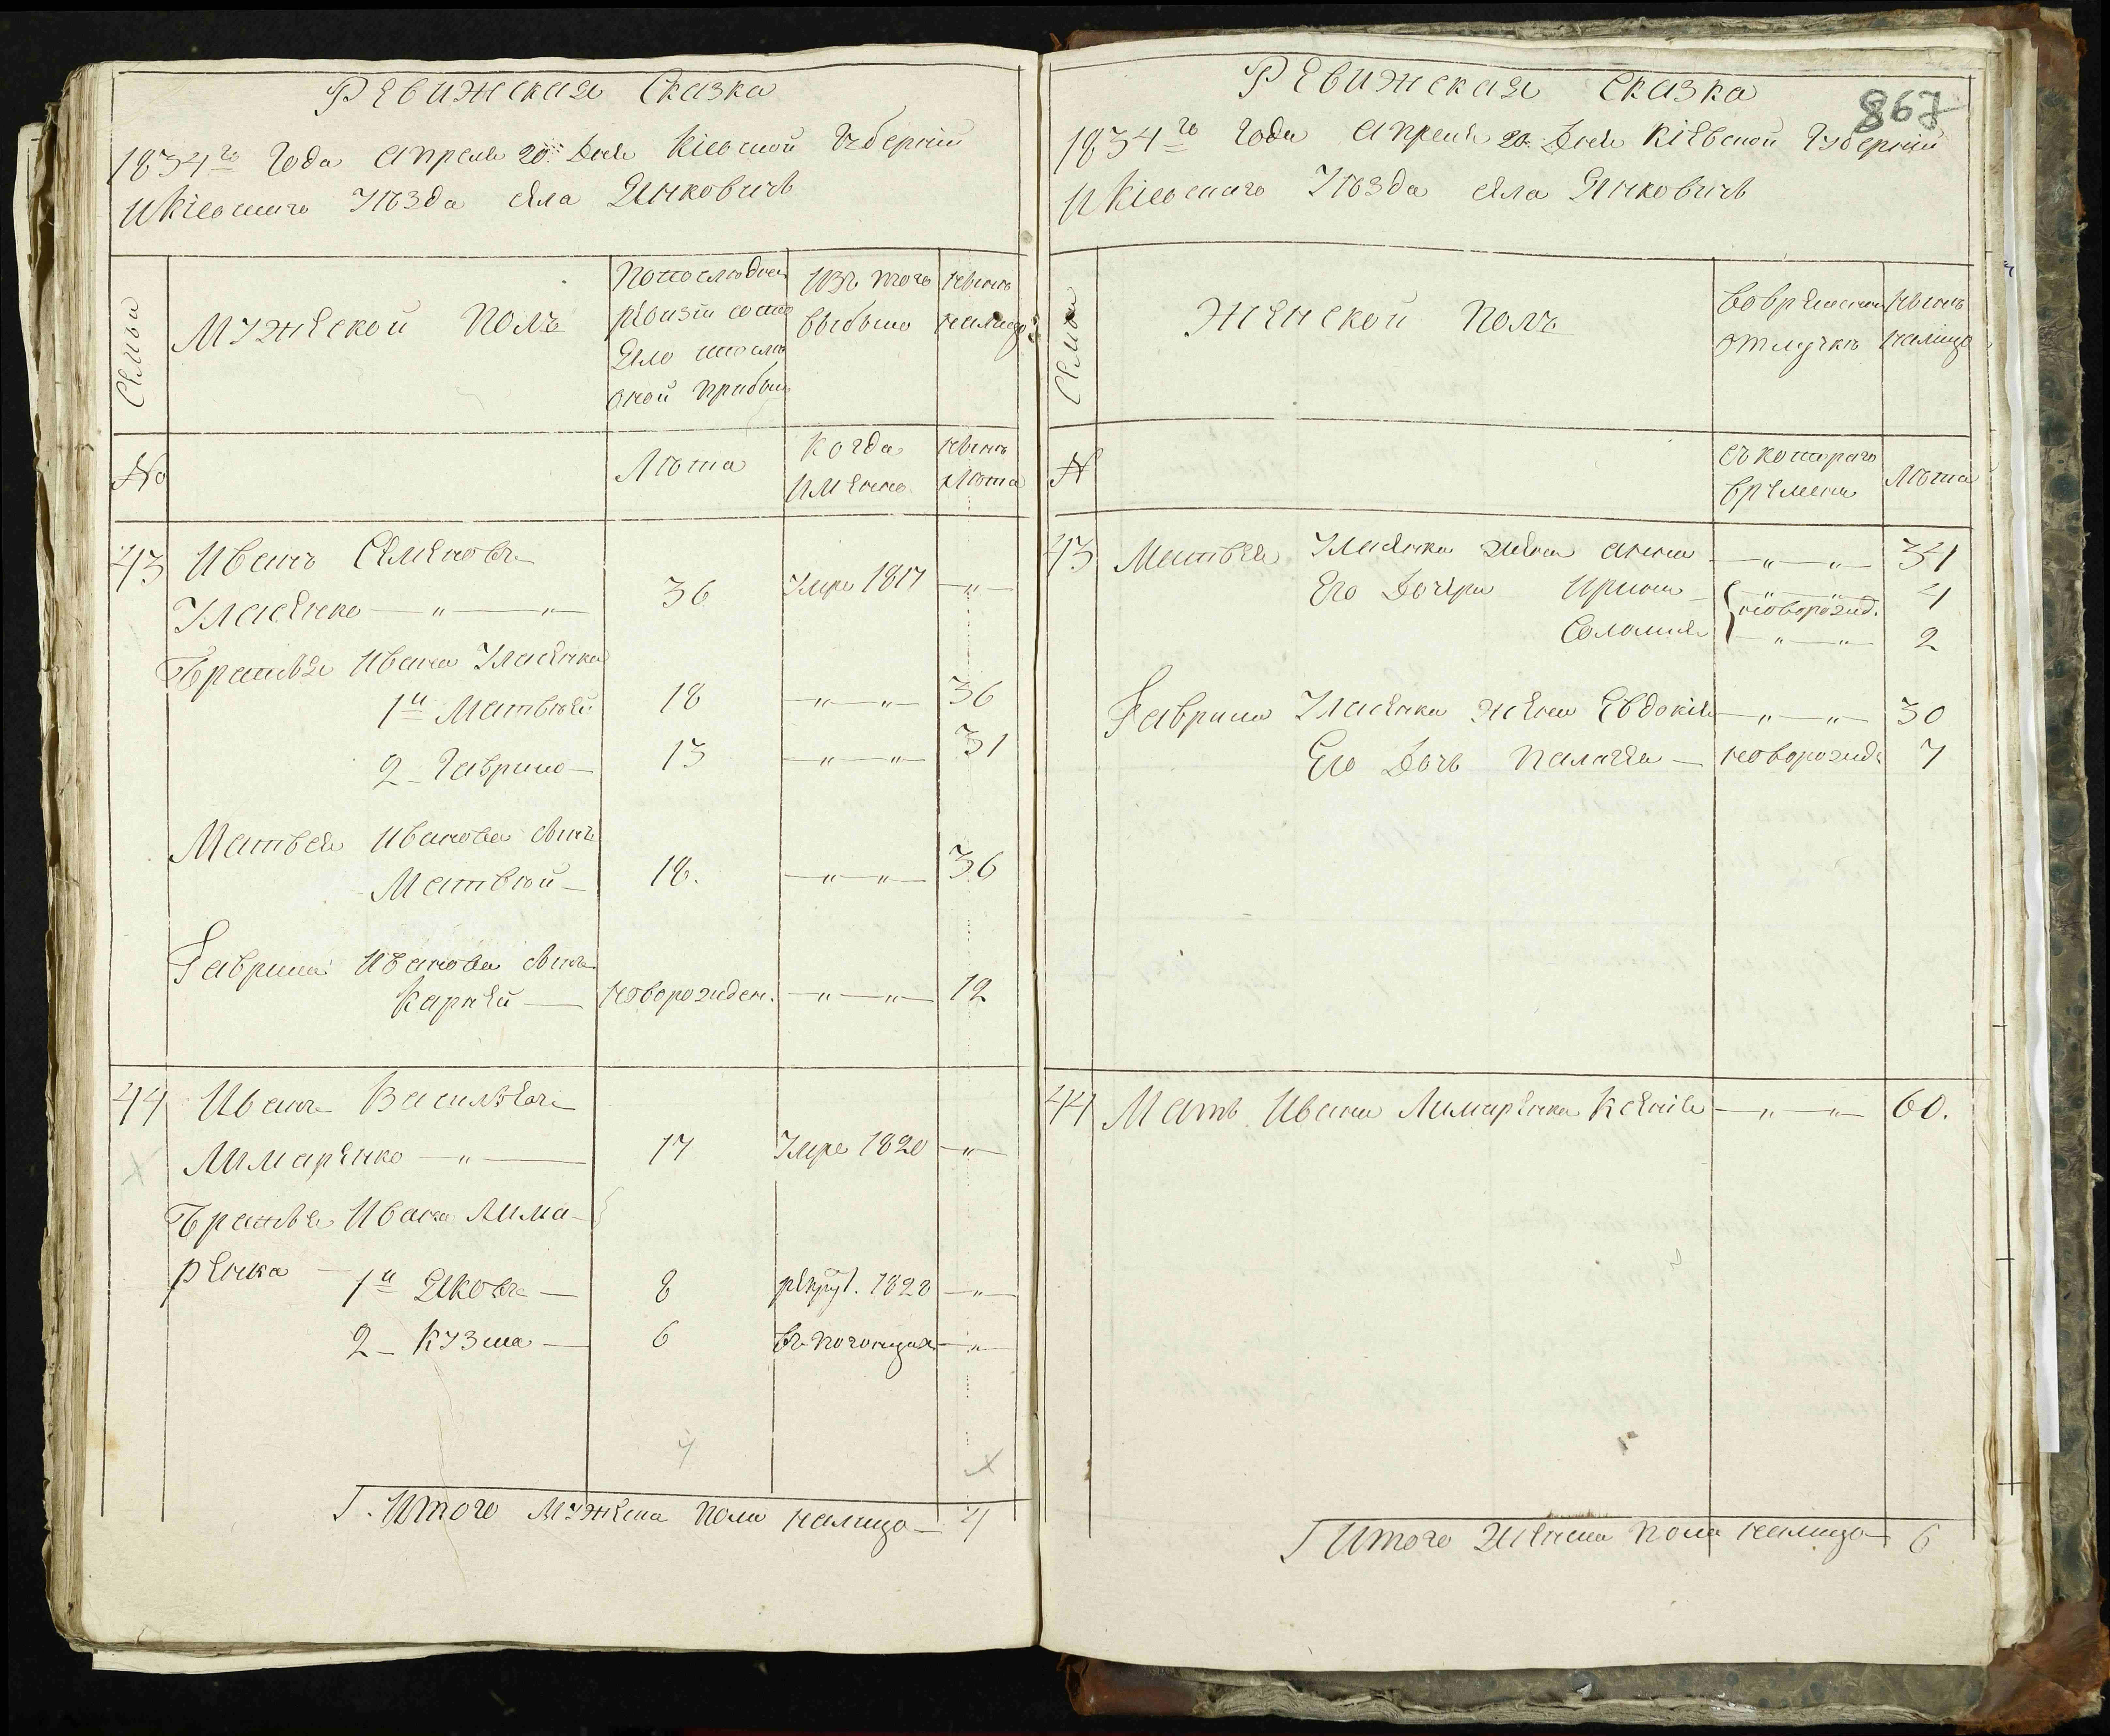 Ревижская Сказка
1834го Года апреля 20. Дня Кіевской Губерніи
и Кіевскаго Уѣзда села Янковичь
Семьи
Мужеской Полъ
По последней
ревизіи состо
яло и после
оной прибыло
Изъ того
выбыло
Нынѣ
налицо
№
Лѣта
Когда
имянно
Нынѣ
Лѣта
43
Иванъ Семеновъ
Уласенко — „ — „
36
Умре 1817
— „ —
Братья Ивана Уласенка
1й Матвѣй
18
— „ — „ —
36
2 - Гаврило —
13
— „ — „ —
31
Матвея Иванова сынъ
Матвѣй —
18.
— „ — „ —
36
Гаврила Иванова сынъ
Карпѣй —
новорожден.
— „ — „ —
12
44
Иванъ Васильевъ
Лимаренко — „ —
17
Умре 1820
— „ —
Братья Ивана Лима-
ренка — 1й Яковъ —
8
рекрут. 1828
— „ —
2 - Кузма —
6
— „ —
4
Итого Мужеска пола налицо — 4
Ревижская Сказка
867
1834го Года апреля 20. Дня Кіевской Губерніи
и Кіевскаго Уѣзда села Янковичь
Семьи
Женской Полъ
Во временной
отлучкѣ
Нынѣ
налицо
№
Съ котораго
времени
Лѣта
43
Матвея Уласенка жена анна
— „ — „ —
34
Его Дочери Ирина —
новорожд.
4
Соломия
— „ — „ —
2
Гаврила Уласенка жена Евдокія
— „ — „ —
30
Его Дочь Палагея —
новорожд.
7
44
Мать Ивана Лимаренка Ксенія
— „ — „ —
60.
Итого Женска пола налицо — 6